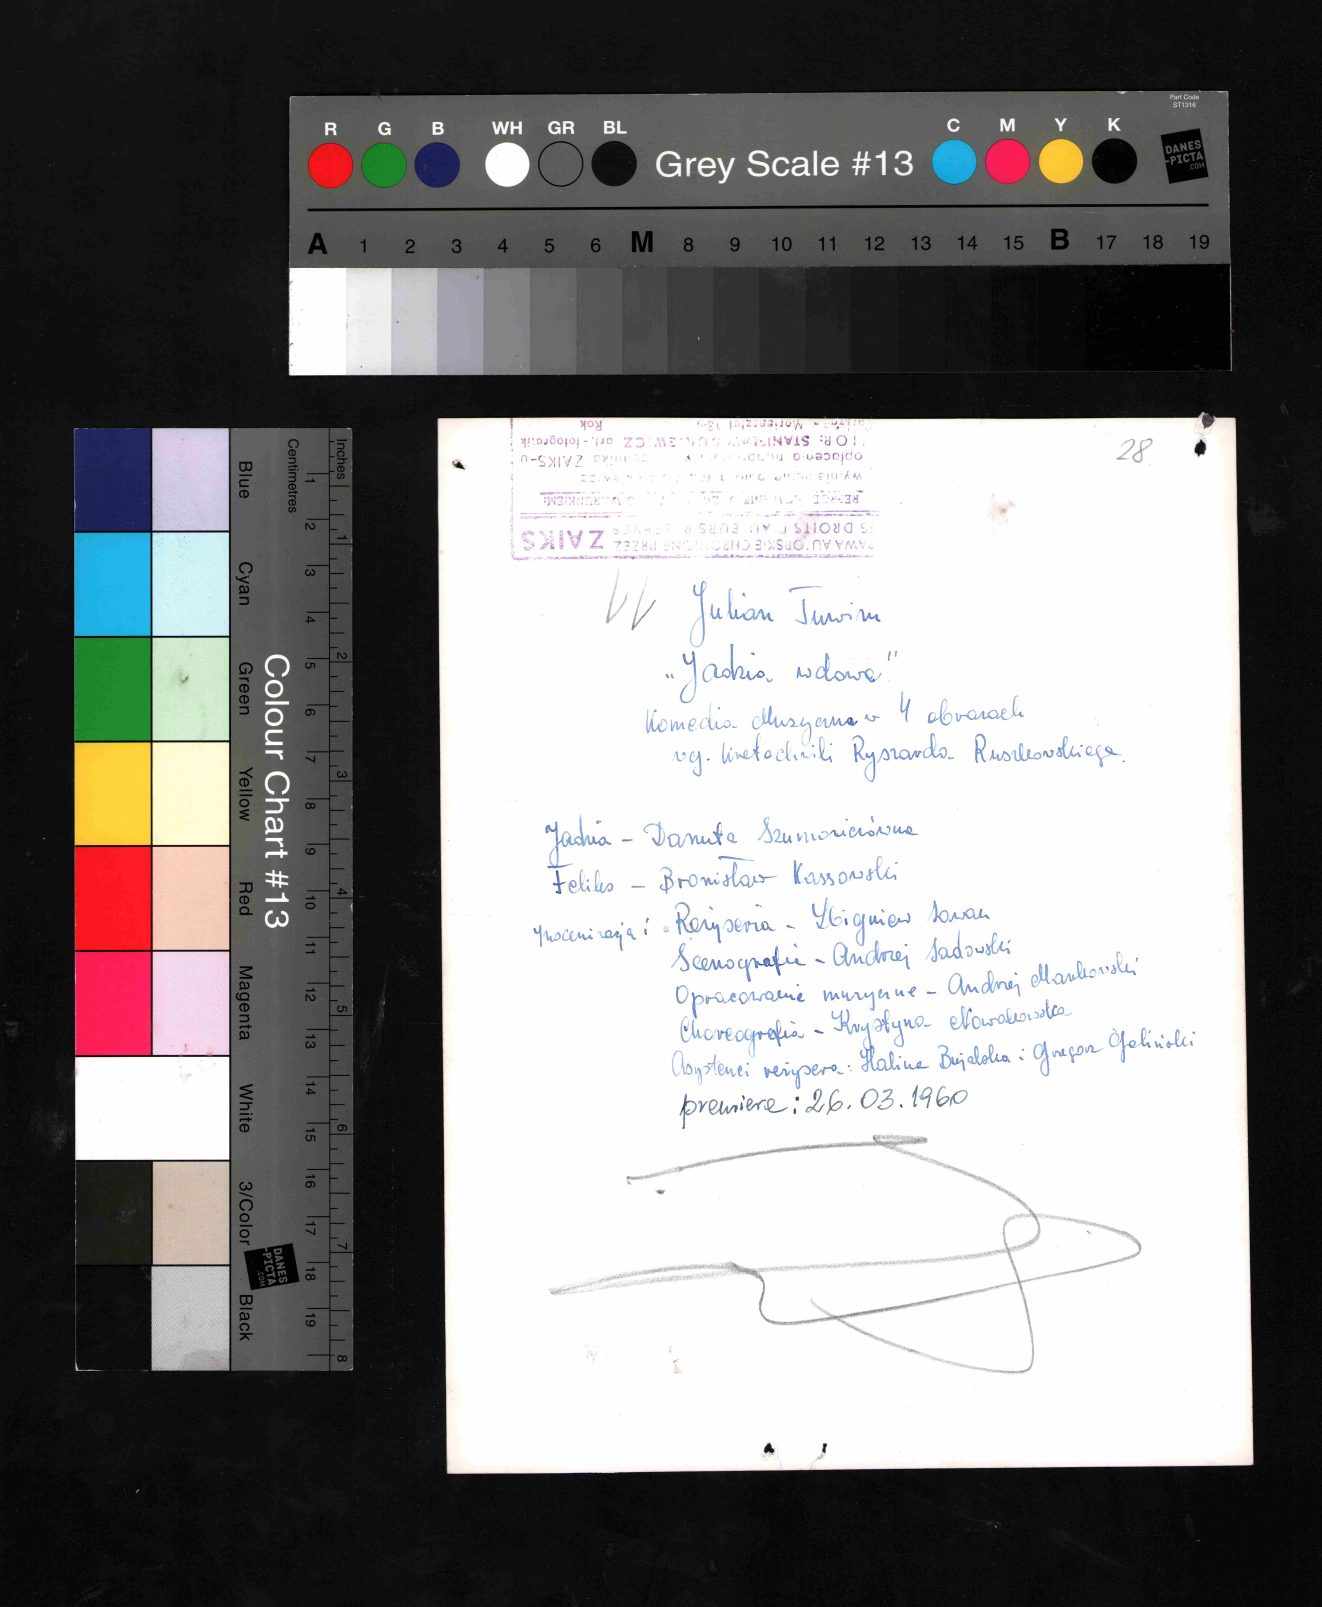 Part Code
ST1316
R G B WH GR BL Grey Scale #13 C M Y K
DANES
-PICTA
.COM
A 1 2 3 4 5 6 M 8 9 10 11 12 13 14 15 B 17 18 19
Colour Chart #13
Blue
Cyan
Green
Yellow
Red
Magenta
White
3/Color
Black
Centimetres
1 2 3 4 5 6 7 8 9 10 11 12 13 14 15 16 17 18 19
Inches
1 2 3 4 5 6 7 8
DANES
-PICTA
.COM
28
PRZEZ ZAIKS
STANISŁAW art.-fotografik
Rok
Julian Tuwim
„Jadzia wdowa"
Komedia Muzyczna w 4 obrazach
wg. krotochwili Ryszarda Ruszkowskiego.
Jadzia – Danuta Szumowiczówna
Feliks – Bronisław Kassowski
Inscenizacja i Reżyseria – Zbigniew Sawan
Scenografia – Andrzej Sadowski
Opracowanie muzyczne – Andrzej Markowski
Choreografia – Krystyna Nowakowska
Asystenci reżysera: Halina Bujalska i Grzegorz Galiński
premiera: 26.03.1960